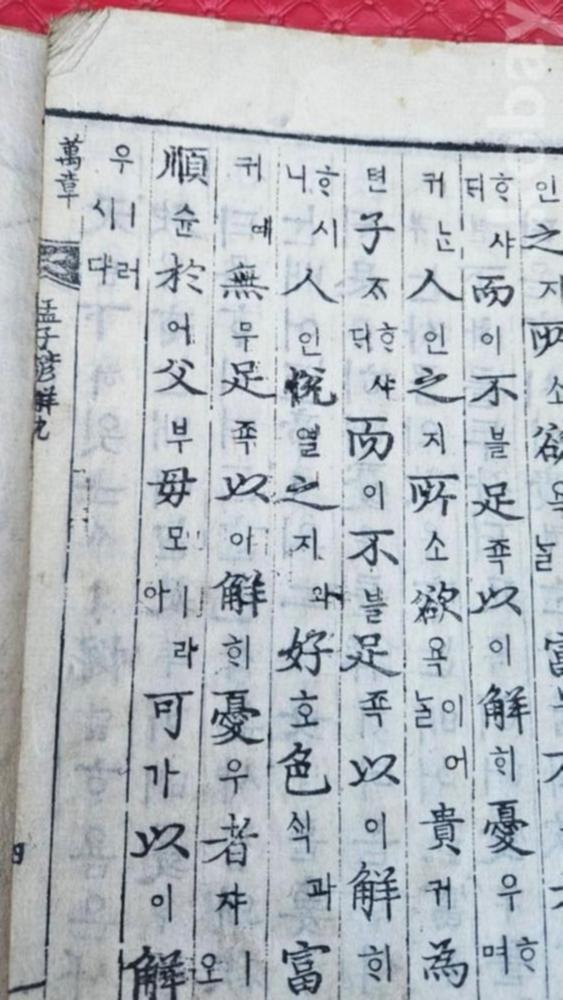 인之지所소欲욕
ᄒᆞ샤ᄃᆡ而이不블足죡以이解ᄒᆡ憂우ᄒᆞ며
귀ᄂᆞᆫ人인之지所소欲욕이어ᄂᆞᆯ貴귀為
텬子ᄌᆞᄒᆞ샤ᄃᆡ而이不블足죡以이解ᄒᆡ
ᄒᆞ시니人인悅열之지과好호色ᄉᆡᆨ과富
귀예無무足죡以아解ᄒᆡ憂우者쟈ㅣ오
順슌於어父부母모ㅣ라아可가以이解
우ㅣ러시다
萬章
孟子諺解九